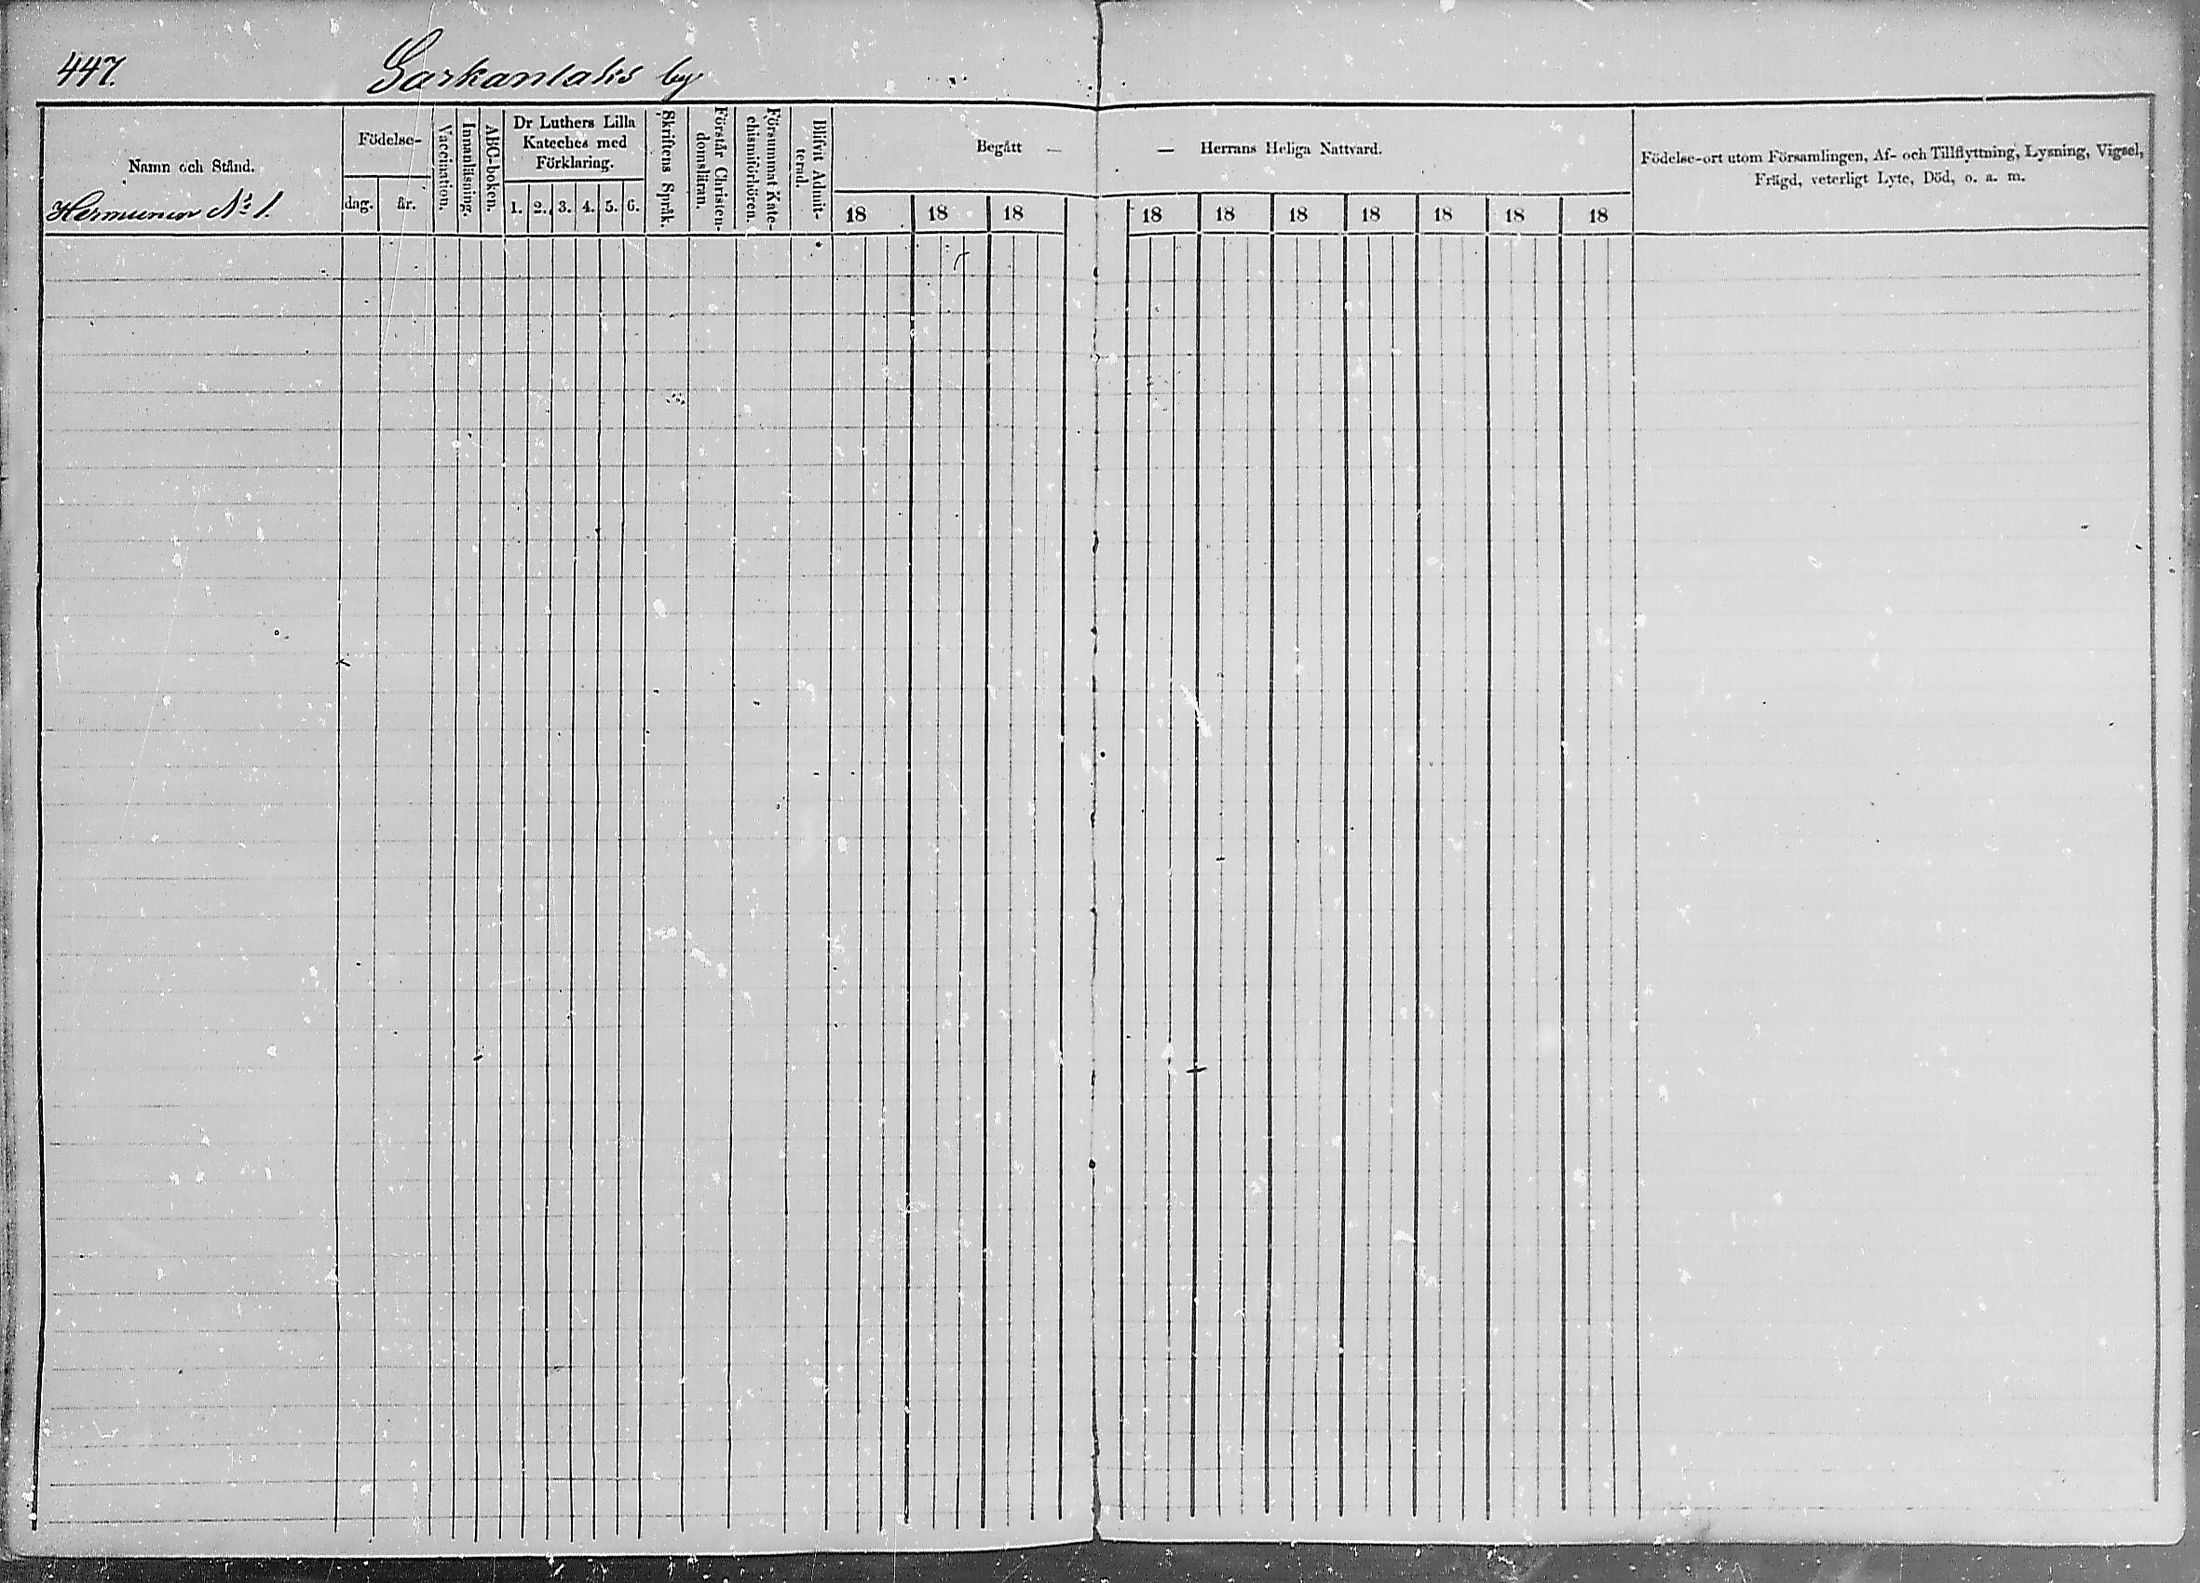 447. Sarkanlaks by
Namn och Stånd.
Hermunen No 1.
Födelse-
dag. år.
Vaccination.
Innanläsning.
ABC-boken.
Dr Luthers Lilla
Kateches med
Förklaring.
1. 2. 3. 4. 5. 6.
Skriftens Språk.
Förstår Christen-
domsläran.
Försummat Kate-
chismiförhören.
Blifvit Admit-
terad.
Begått — — Herrans Heliga Nattvard.
18 18 18 18 18 18 18 18 18 18
Födelse-ort utom Församlingen, Af- och Tillflyttning, Lysning, Vigsel,
Frägd, veterligt Lyte, Död, o. a. m.